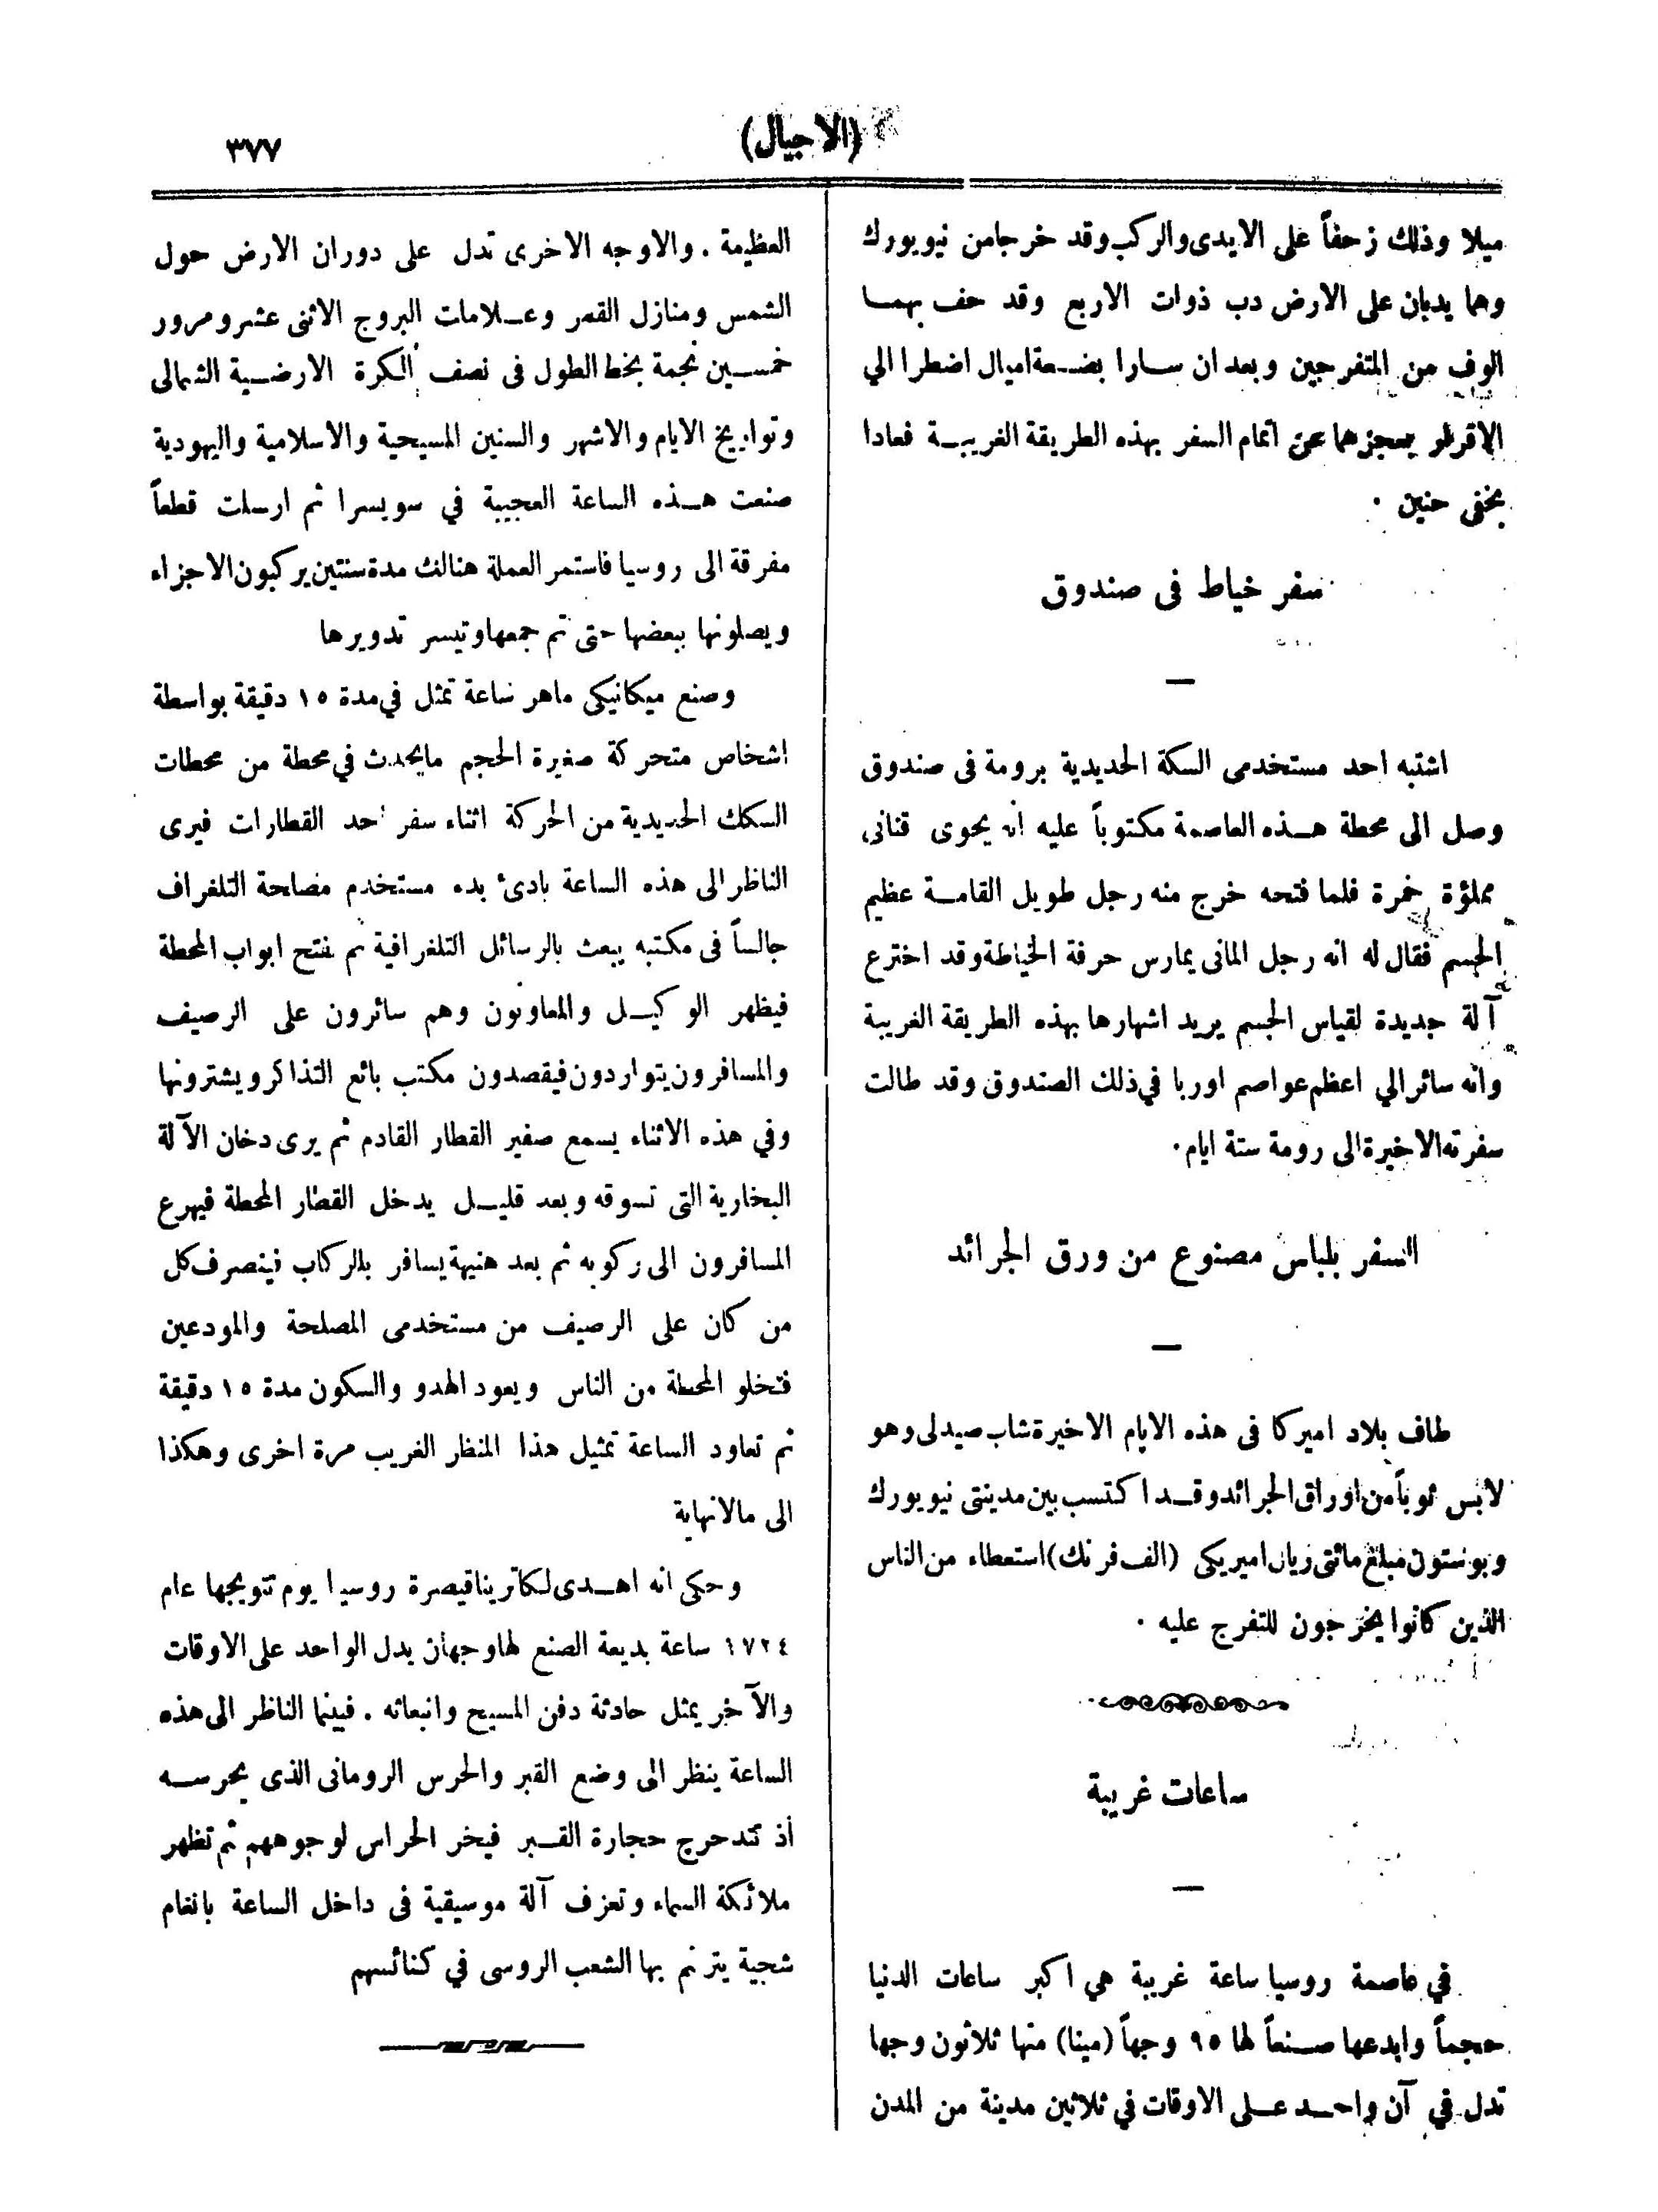 (الاجيال)
٣٧٧
ميلا وذلك زحفاً على الايدى والركب وقد خرجا من نيويورك
وهما يدبان على الارض دب ذوات الاربع وقد حف بهما
الوف من المتفرجين وبعد ان سارا بضعة اميال اضطرا الي
الاقرار بعجزهما عن اتمام السفر بهذه الطريقة الغريبة فعادا
بخفى حنين .
سفر خياط فى صندوق
اشتبه احد مستخدمى السكة الحديدية برومة فى صندوق
وصل الى محطة هذه العاصمة مكتوباً عليه انه يحوى قنانى
مملؤة خمرة فلما فتحه خرج منه رجل طويل القامة عظيم
الجسم فقال له انه رجل المانى يمارس حرفة الخياطة وقد اخترع
آلة جديدة لقياس الجسم يريد اشهارها بهذه الطريقة الغريبة
وانه سائر الي اعظم عواصم اوربا في ذلك الصندوق وقد طالت
سفرته الاخيرة الى رومة ستة ايام.
السفر بلباس مصنوع من ورق الجرائد
طاف بلاد اميركا فى هذه الايام الاخيرة شاب صيدلى وهو
لابس ثوباً من اوراق الجرائد وقد اكتسب بين مدينتى نيويورك
وبوستون مبلغ مائتى ريال اميريكى (الف فرنك) استعطاء من الناس
الذين كانوا يخرجون للتفرج عليه .
ساعات غريبة
في عاصمة روسيا ساعة غريبة هي اكبر ساعات الدنيا
حجماً وابدعها صنعاً لها ٩٥ وجهاً (مينا) منها ثلاثون وجها
تدل في آن واحد على الاوقات في ثلاثين مدينة من المدن
العظيمة . والاوجه الاخرى تدل على دوران الارض حول
الشمس ومنازل القمر وعلامات البروج الاثنى عشر ومرور
خمسين نجمة بخط الطول فى نصف الكرة الارضية الشمالى
وتواريخ الايام والاشهر والسنين المسيحية والاسلامية واليهودية
صنعت هذه الساعة العجيبة في سويسرا ثم ارسلت قطعاً
مفرقة الى روسيا فاستمر العملة هنالك مدة سنتين يركبون الاجزاء
ويصلونها ببعضها حتى تم جمعها وتيسر تدويرها
وصنع ميكانيكى ماهر ساعة تمثل في مدة ١٥ دقيقة بواسطة
اشخاص متحركة صغيرة الحجم مايحدث في محطة من محطات
السكك الحديدية من الحركة اثناء سفر احد القطارات فيرى
الناظر الى هذه الساعة بادئ بدء مستخدم مصلحة التلغراف
جالساً فى مكتبه يبعث بالرسائل التلغرافية ثم نفتح ابواب المحطة
فيظهر الوكيل والمعاونون وهم سائرون على الرصيف
والمسافرون يتواردون فيقصدون مكتب بائع التذاكر ويشترونها
وفي هذه الاثناء يسمع صفير القطار القادم ثم يرى دخان الآلة
البخارية التى تسوقه وبعد قليل يدخل القطار المحطة فيهرع
المسافرون الى ركوبه ثم بعد هنيهة يسافر بالركاب فينصرف كل
من كان على الرصيف من مستخدمى المصلحة والمودعين
فتخلو المحطة من الناس ويعود الهدو والسكون مدة ١٥ دقيقة
ثم تعاود الساعة تمثيل هذا المنظر الغريب مرة اخرى وهكذا
الى مالانهاية
وحكى انه اهدى لكاترينا قيصرة روسيا يوم تتويجها عام
١٧٢٤ ساعة بديعة الصنع لها وجهان يدل الواحد على الاوقات
والآخر يمثل حادثة دفن المسيح وانبعاثه . فبينما الناظر الى هذه
الساعة ينظر الى وضع القبر والحرس الرومانى الذى يحرسه
أذ تتدحرج حجارة القبر فيخر الحراس لوجوههم ثم تظهر
ملائكة السماء وتعزف آلة موسيقية فى داخل الساعة بانغام
شجية يترنم بها الشعب الروسى في كنائسهم